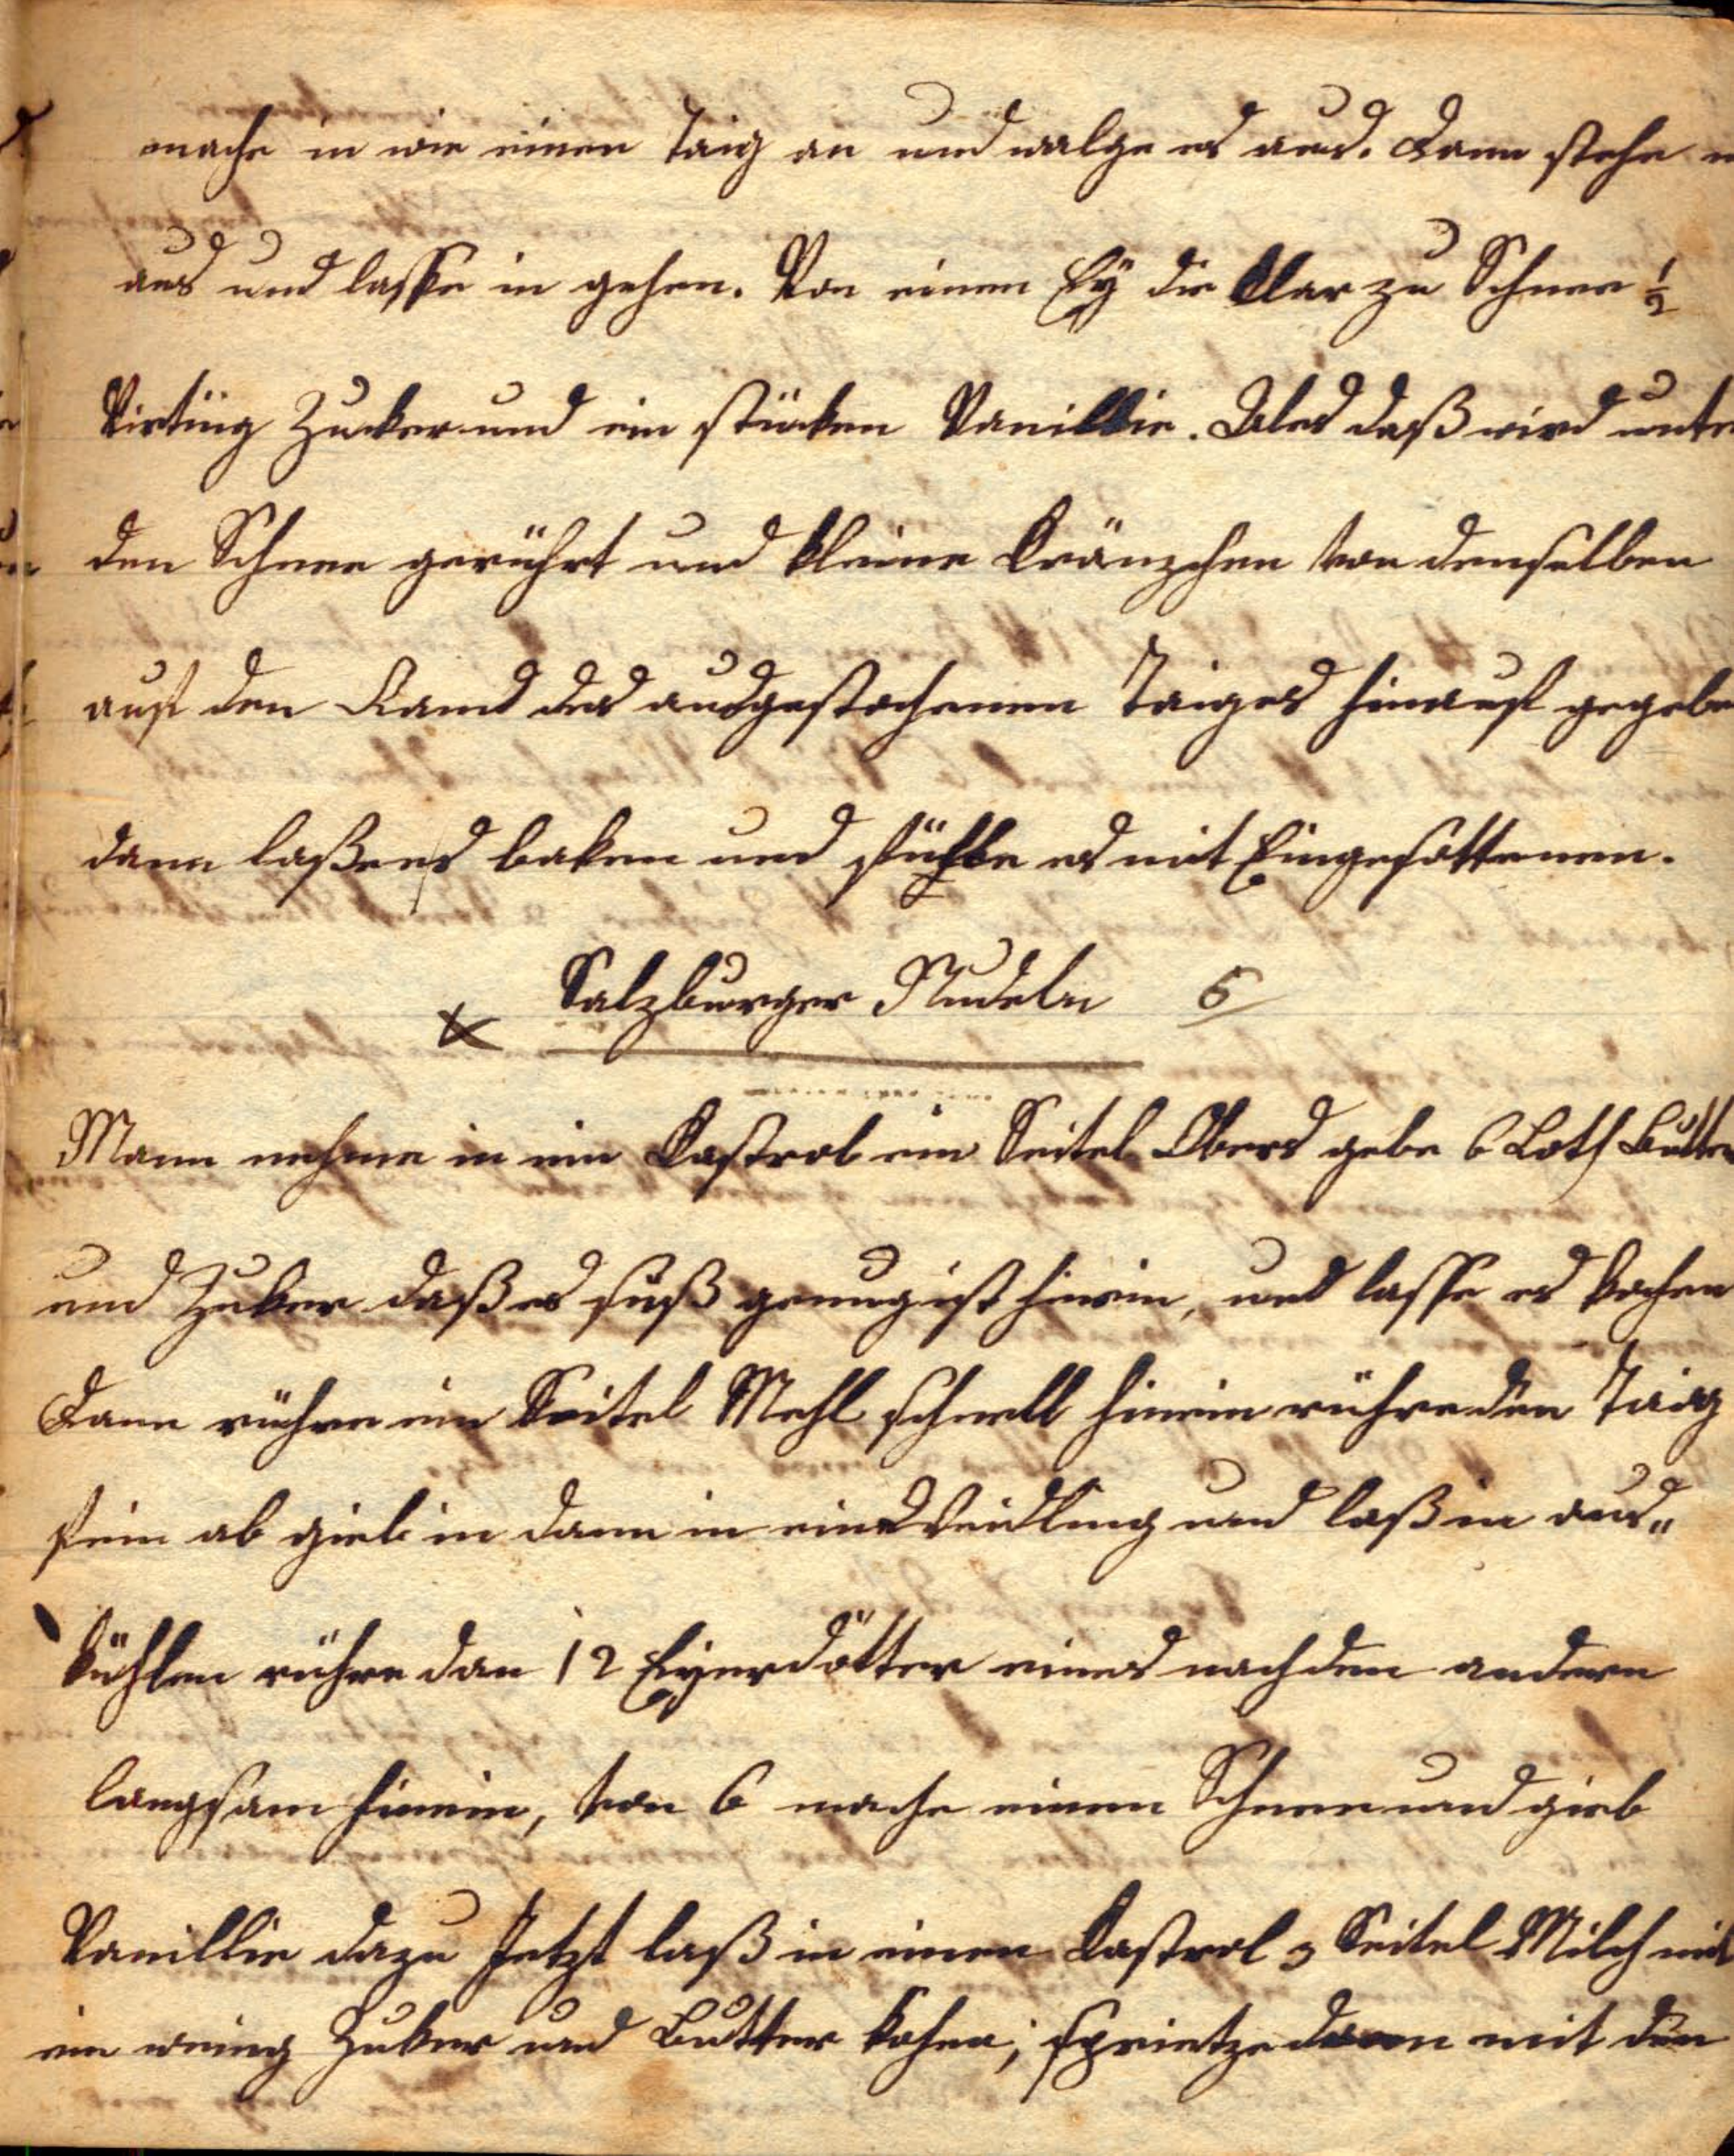 mache in wie einen Taig an und walge es aus. Dann steche
aus und lasse in gehen. Von einem Eÿ die Klar zu Schnee ½
Virting Zucker und ein stücken Vanillie. Ales daß wird unte
den Schnee gerührt und kleine Kränzchen von demselben
auf den Rand des ausgestochenen Taiges hinauf gegebe
dann laßees baken und fühlle es mit Eingesottenen.
Salzburger Nudeln 5
Mann nehme in ein Kastrol ein Seitel Obers gebe 6 Loth Butter
und Zuker daß es süß genug ist hinein, und lasse es kochen
Dann rühre ein Seitel Mehl schnell hinein rühre den Taig
fein ab gieb in dann in eine Weidling und laß in aus„
kühlen rühre dan 12 Eyerdötter eines nach dem andern
langsam hinein, von 6 mache einen Schnee und gieb
Vanillie dazu Jetzt laß in einen Kastrol 3 Seitel Milch mit
ein wenig Zuker und Butter kohen; sprietze dann mit den